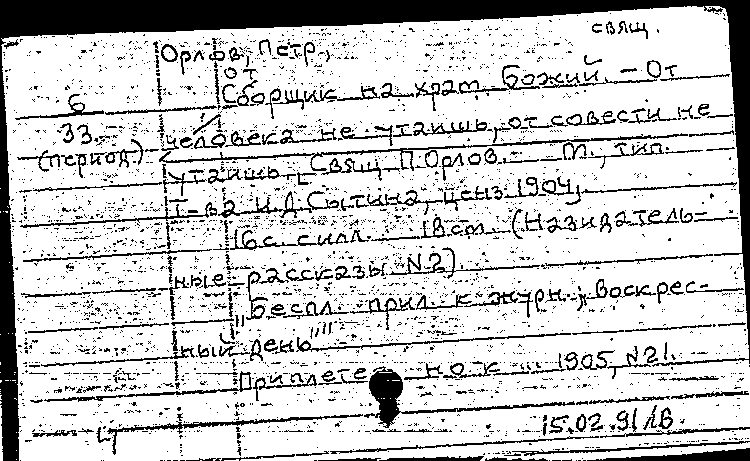 свящ.
Орлов, Петр,
от
6 Сборщик на храм Божий. – От
33.– человека не утаишь, от совести не
(период.) утаишь. [Свящ. П. Орлов. – М., тип.
Т-ва И.Д. Сытина, ценз. 1904,
16 с. с илл. 18 см. (Назидатель-
ные рассказы №2).
„Беспл. прил. к журн. „Воскрес-
ный день""
Приплетено к ... 1905, №21.
15.02.91